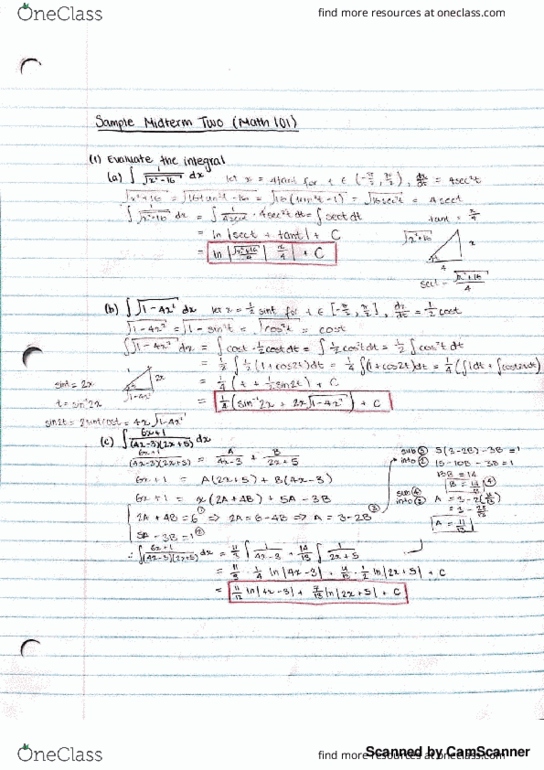 OneClass
find more resources at oneclass.com
Sample Midterm Two (Math 101)
(1) Evaluate the integral
(a) ∫ 1/√(x²-16) dx let x = 4tant for t ∈ [-π/2, π/2], dx/dt = 4sec²t
= √(16sec²t) = 4sect
tant = x/4
= ∫ 1/4sect · 4sec²t dt = ∫ sect dt
= ln |sect + tant| + C
sect = √(x²+16)/4
(b) ∫ √(1-4x²) dx let x = ½ sint for t ∈ [-π/2, π/2], dx/dt = ½ cost
√(1-4x²) = √(1-sin²t) = √(cos²t) = cost
∫ √(1-4x²) dx = ∫ cost · ½ cost dt = ∫ ½ cos²t dt = ½ ∫ cos²t dt
= ½ ∫ ½ (1 + cos2t) dt = ¼ ∫ (1 + cos2t) dt = ¼ (∫ 1dt + ∫ cos2t dt)
sint = 2x
= ¼ (t + ½ sin2t) + C
t = sin⁻¹2x
= ¼ (sin⁻¹2x + 2x√(1-4x²)) + C
sin2t = 2sintcost = 4x√(1-4x²)
(c) ∫ (6x+1)/((4x-3)(2x+5)) dx
(6x+1)/((4x-3)(2x+5)) = A/(4x-3) + B/(2x+5)
6x + 1 = A(2x+5) + B(4x-3)
6x + 1 = x(2A+4B) + 5A - 3B
2A + 4B = 6 ① ⇒ 2A = 6 - 4B ⇒ A = 3 - 2B ③
5A - 3B = 1 ②
sub ③ into ② 5(3-2B) - 3B = 1
15 - 10B - 3B = 1
13B = 14
B = 14/13 ④
A = 3 - 2(14/13)
= 3 - 28/13
A = 11/13
∴ ∫ (6x+1)/((4x-3)(2x+5)) dx = 11/13 ∫ 1/(4x-3) + 14/13 ∫ 1/(2x+5)
OneClass
find more resources at oneclass.com
Scanned by CamScanner